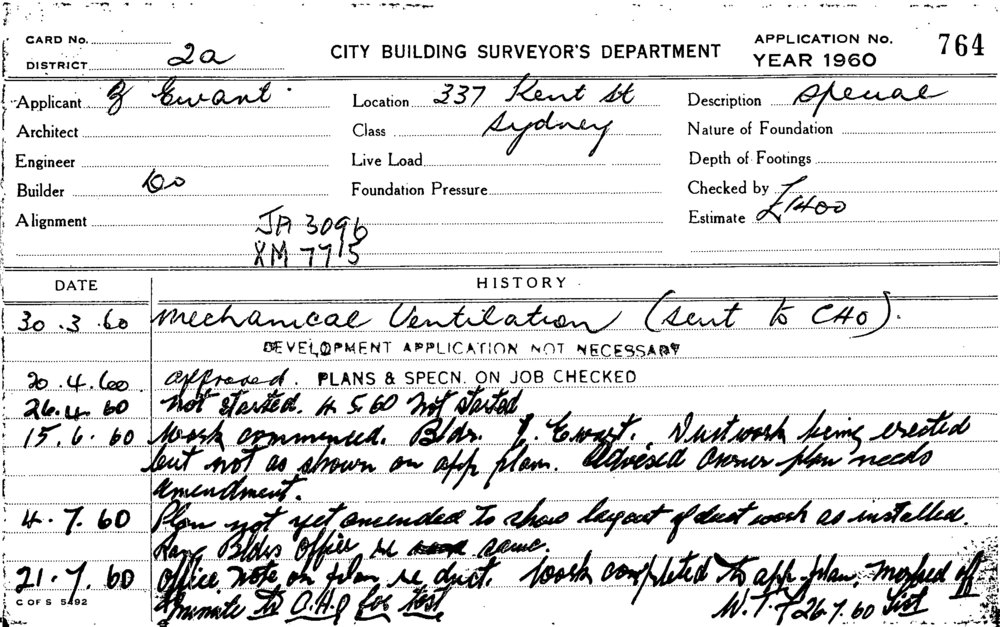 CARD No.
DISTRICT 2a
CITY BUILDING SURVEYOR'S DEPARTMENT
APPLICATION No. 764
YEAR 1960
Applicant Ewart
Location 337 Kent St
Description Special
Architect
Class Sydney
Nature of Foundation
Engineer
Live Load
Depth of Footings
Builder Do
Foundation Pressure
Checked by
Alignment
Estimate £1400
JA 3096
XM 7715
DATE HISTORY
30.3.60 Mechanical Ventilation (sent to CHO).
DEVELOPMENT APPLICATION NOT NECESSARY
20.4.60 approved. PLANS & SPECN. ON JOB CHECKED
26.4.60 Not started. 4.5.60 Not started
15.6.60 Work commenced. Bldr. Ewart. Ductwork being erected
but not as shown on app plan. Advised Owner plan needs
amendment.
4.7.60 Plan not yet amended to show layout of duct work as installed.
Rang Bldrs Office re same.
21.7.60 Office note on plan re duct. Work completed to app. plan. Marked off
C OF S 5492
Minute to C.H.O for test
26.7.60